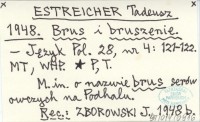 ESTREICHER Tadeusz
1948. Brus i bruszenie.
— Język Pol. 28, nr 4: 121-122.
MT, WAP. * P,T.
M.in. o nazwie brus serów
owczych na Podhalu.
Rec.: ZBOROWSKI J. 1948 b.